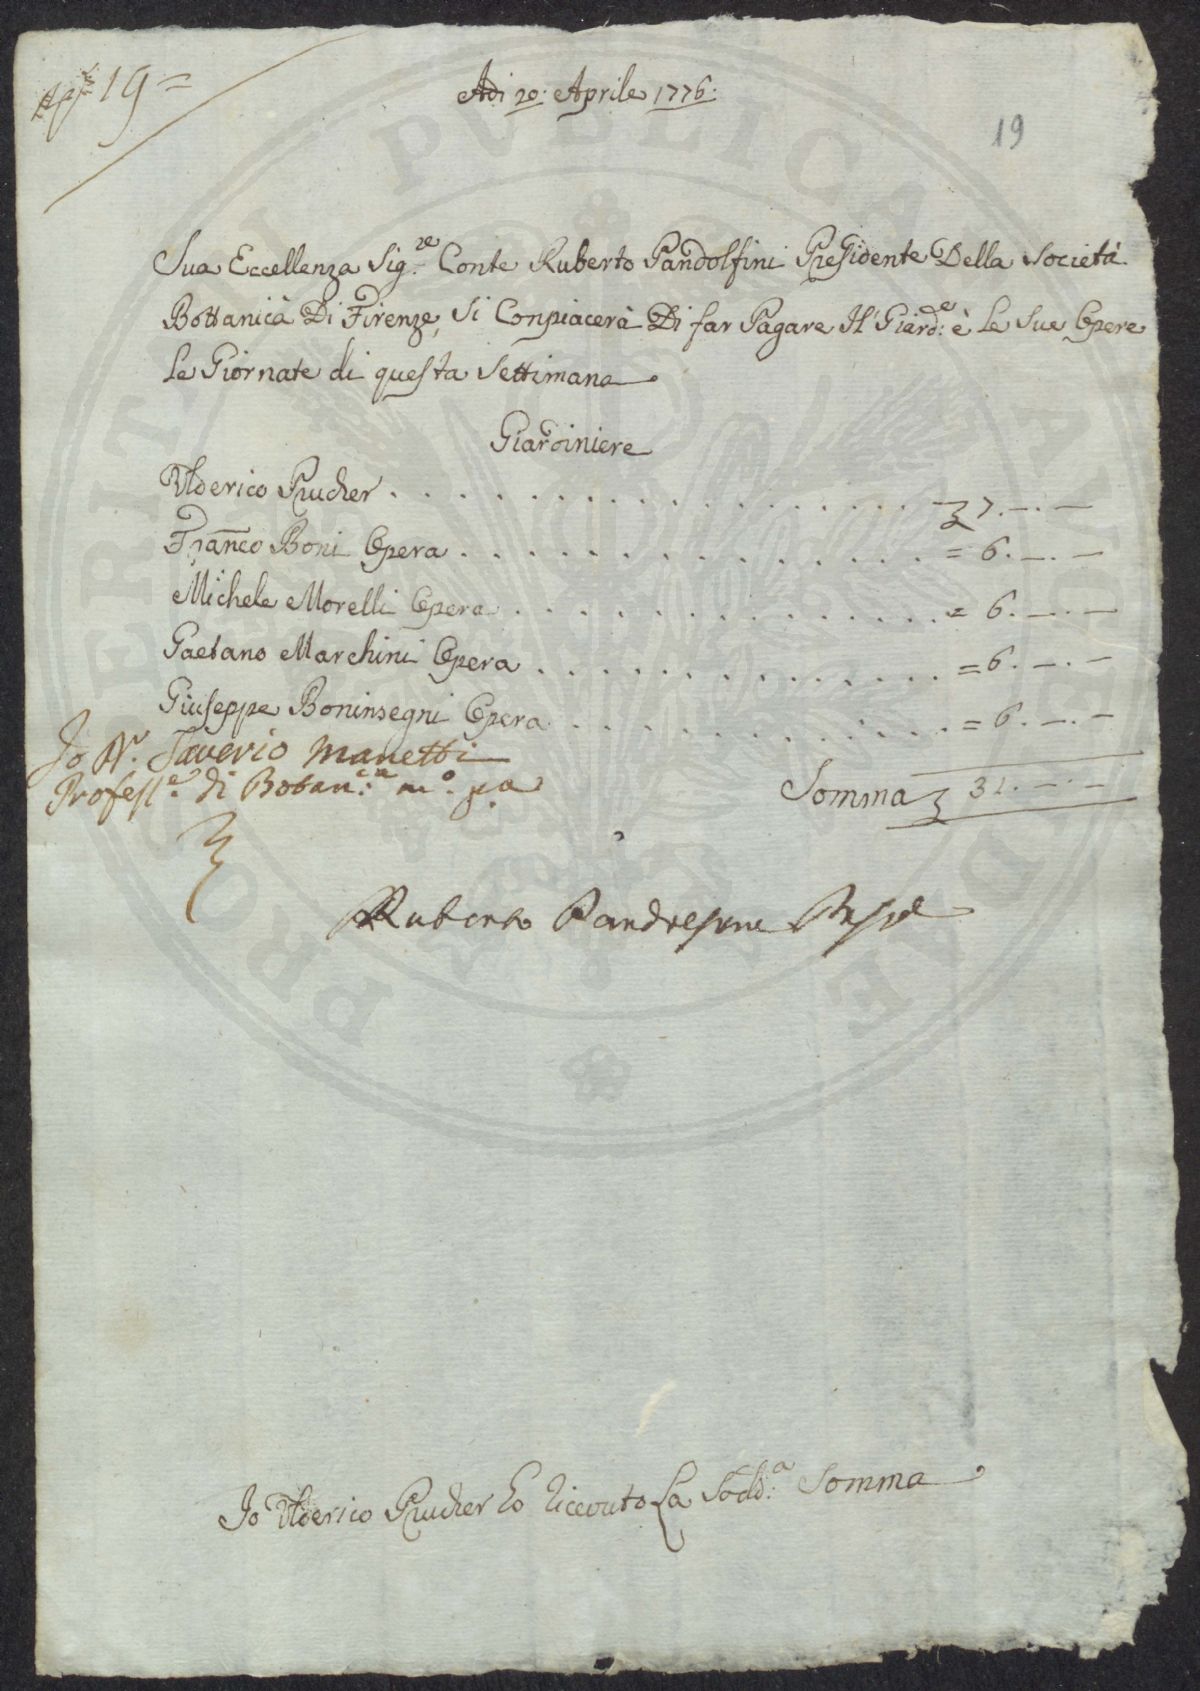 19 =
Adi 20: Aprile 1776:
19
Sua Eccellenza Sig.re Conte Ruberto Pandolfini Presidente Della Società
Bottanicà Di Firenze, Si Conpiacerà Di far Pagare Il Giard:e è Le Sue Opere
Le Giornate di questa Settimana
Giardiniere
Ulderico Prucher . . . . . . . . . . . . . . . . 7. — . —
Franco Boni Opera . . . . . . . . . . . . . = 6. — . —
Michele Morelli Opera . . . . . . . . . . . . = 6. — . —
Gaetano Marchini Opera . . . . . . . . . . . = 6. — . —
Giuseppe Boninsegni Opera . . . . . . . . . . = 6. — . —
Io D. Saverio Manetti
Profess.e di Botan:ca m.o p.a
Somma 31. — . —
Ruberto Pandolfini Presid
Io Ulderico Prucher ho ricevuto La Sodd:a Somma
PROSPERITATI PUBLICAE AUGENDAE